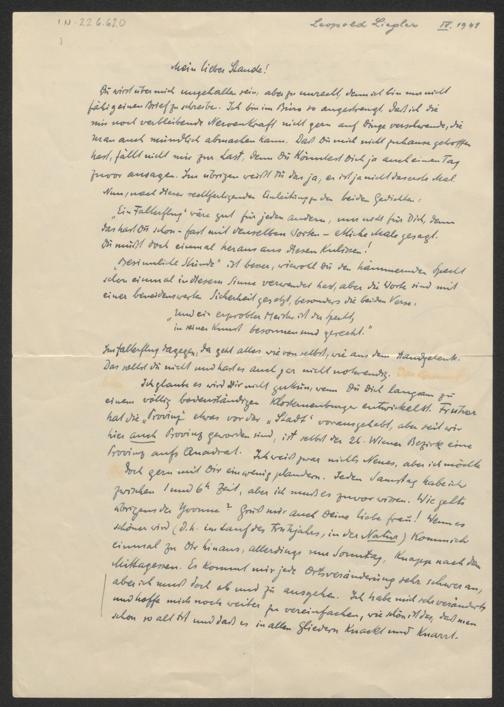 I.N. 226.620
Leopold Liegler IV. 1941
Mein lieber Staude!
Du wirst über mich ungehalten sein, aber zu unrecht, denn ich bin nun nicht
fähig einen Brief zu schreiben. Ich bin im Büro so angestrengt, daß ich die
mir noch verbleibende Nervenkraft nicht gern auf Dinge verschwende, die
man auch mündlich abmachen kann. Daß Du mich nicht zuhause getroffen
hast, fällt nicht mir zur Last, denn Du könntest Dich ja auch einen Tag
zuvor ansagen. Im übrigen weißt Du das ja, es ist ja nicht das erste Mal.
Nun, nach dieser rechtfertigenden Einleitung zu den beiden Gedichten:
"Ein Falterflug" wäre gut für jeden andern, nur nicht für Dich, denn
das hast Du schon - fast mit denselben Worten - etliche Male gesagt.
Du mußt doch einmal heraus aus diesen Kulissen!
"Besinnliche Stunde" ist besser, wiewohl Du den hämmernden Specht
schon einmal in diesem Sinne verwendet hast, aber die Worte sind mit
einer beneidenswerten Sicherheit gesetzt, besonders die beiden Verse:
"Und ein erprobter Meister ist der Specht,
in seiner Kunst besonnen und gerecht."
Im Falterflug dagegen, da geht alles wie von selbst, wie aus dem Handgelenk.
Das sollst du nicht und hast es auch gar nicht notwendig.
Ich glaube es wird Dir nicht guttun, wenn Du Dich langsam zu
einem völlig bodenständigen Klosterneuburger entwickelst. Früher
hat die "Provinz" etwas vor der "Stadt" vorausgehabt, aber seit wir
hier auch Provinz geworden sind, ist selbst der 26. Wiener Bezirk eine
Provinz aufs Quadrat. Ich weiß zwar nichts Neues, aber ich möchte
doch gern mit Dir ein wenig plaudern. Jeden Samstag habe ich
zwischen 1 und 6h Zeit, aber ich muß es zuvor wissen. Wie geht's
übrigens der Yvonne? Grüß mir auch Deine liebe Frau! Wenn es
schöner wird (d.h. im Lauf des Frühjahrs, in der Natur) komme ich
einmal zu Dir hinaus, allerdings nur Sonntag, knapp nach dem
Mittagessen. Es kommt mir jede Ortsveränderung sehr schwer an,
aber ich muß doch ab und zu ausgehen. Ich habe mich sehr verändert
und hoffe mich noch weiter zu vereinfachen, wie schön ist das, daß man
schon so alt ist und daß es in allen Gliedern knackt und knarrt.